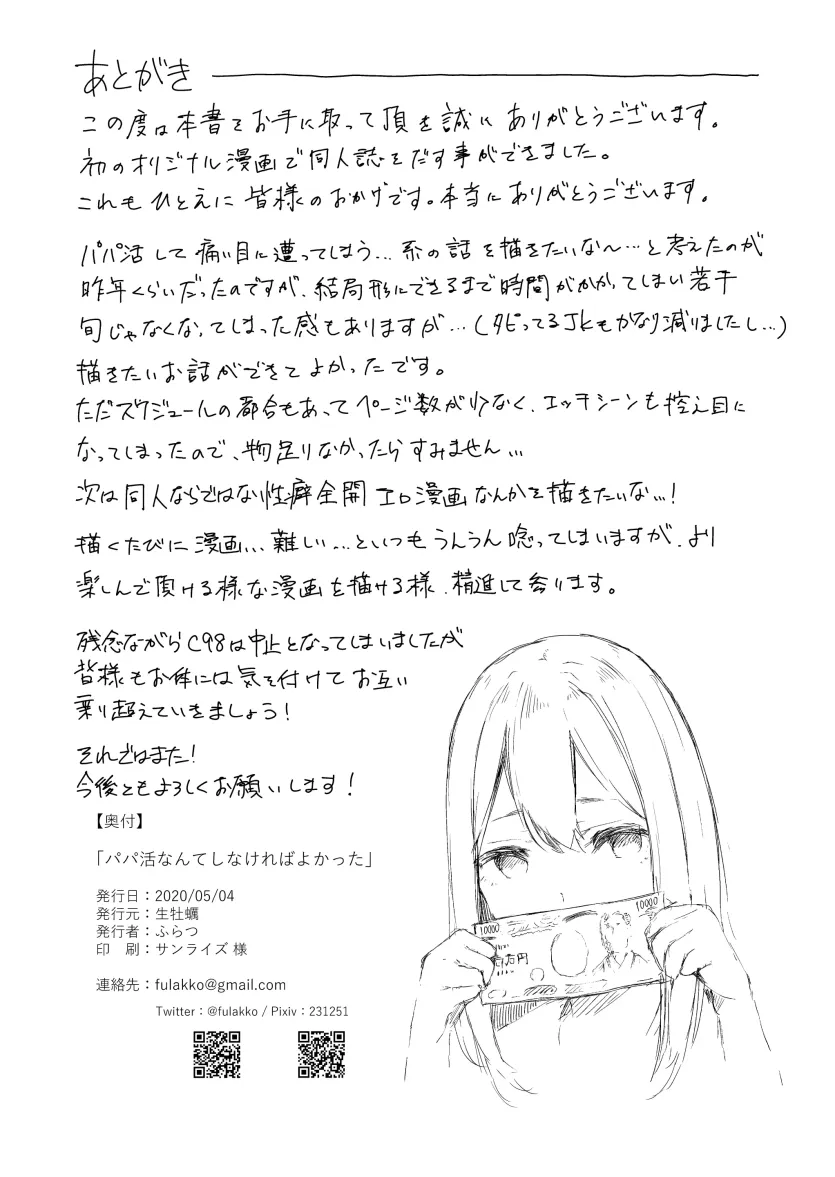 あとがき
この度は本書をお手に取って頂き誠にありがとうございます。
初のオリジナル漫画で同人誌をだす事ができました。
これもひとえに皆様のおかげです。本当にありがとうございます。
パパ活して痛い目に遭ってしまう…系の話を描きたいな〜…と考えたのが
昨年くらいだったのですが、結局形にできるまで時間がかかってしまい若干
旬じゃなくなってしまった感もありますが…(タピってるJKもかなり減りましたし…)
描きたいお話ができてよかったです。
ただスケジュールの都合もあってページ数が少なく、エッチシーンも控え目に
なってしまったので、物足りなかったらすみません…
次は同人ならではな性癖全開エロ漫画なんかを描きたいな…!
描くたびに漫画…難しい…といつもうんうん唸ってしまいますが、より
楽しんで頂ける様な漫画を描ける様、精進して参ります。
残念ながらC98は中止となってしまいましたが
皆様もお体には気を付けてお互い
乗り超えていきましょう!
それではまた!
今後ともよろしくお願いします!
【奥付】
「パパ活なんてしなければよかった」
発行日：2020/05/04
発行元：生牡蠣
発行者：ふらつ
印　刷：サンライズ 様
連絡先：fulakko@gmail.com
Twitter：@fulakko / Pixiv：231251
10000
10000
壱万円